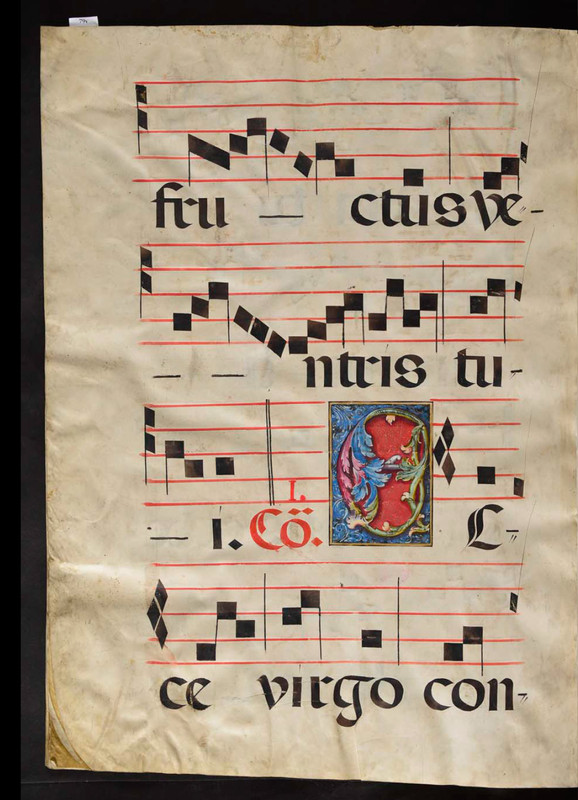 fru — ctus ve-
— — ntris tu-
— i. I. Cõ. E C-
ce virgo con-